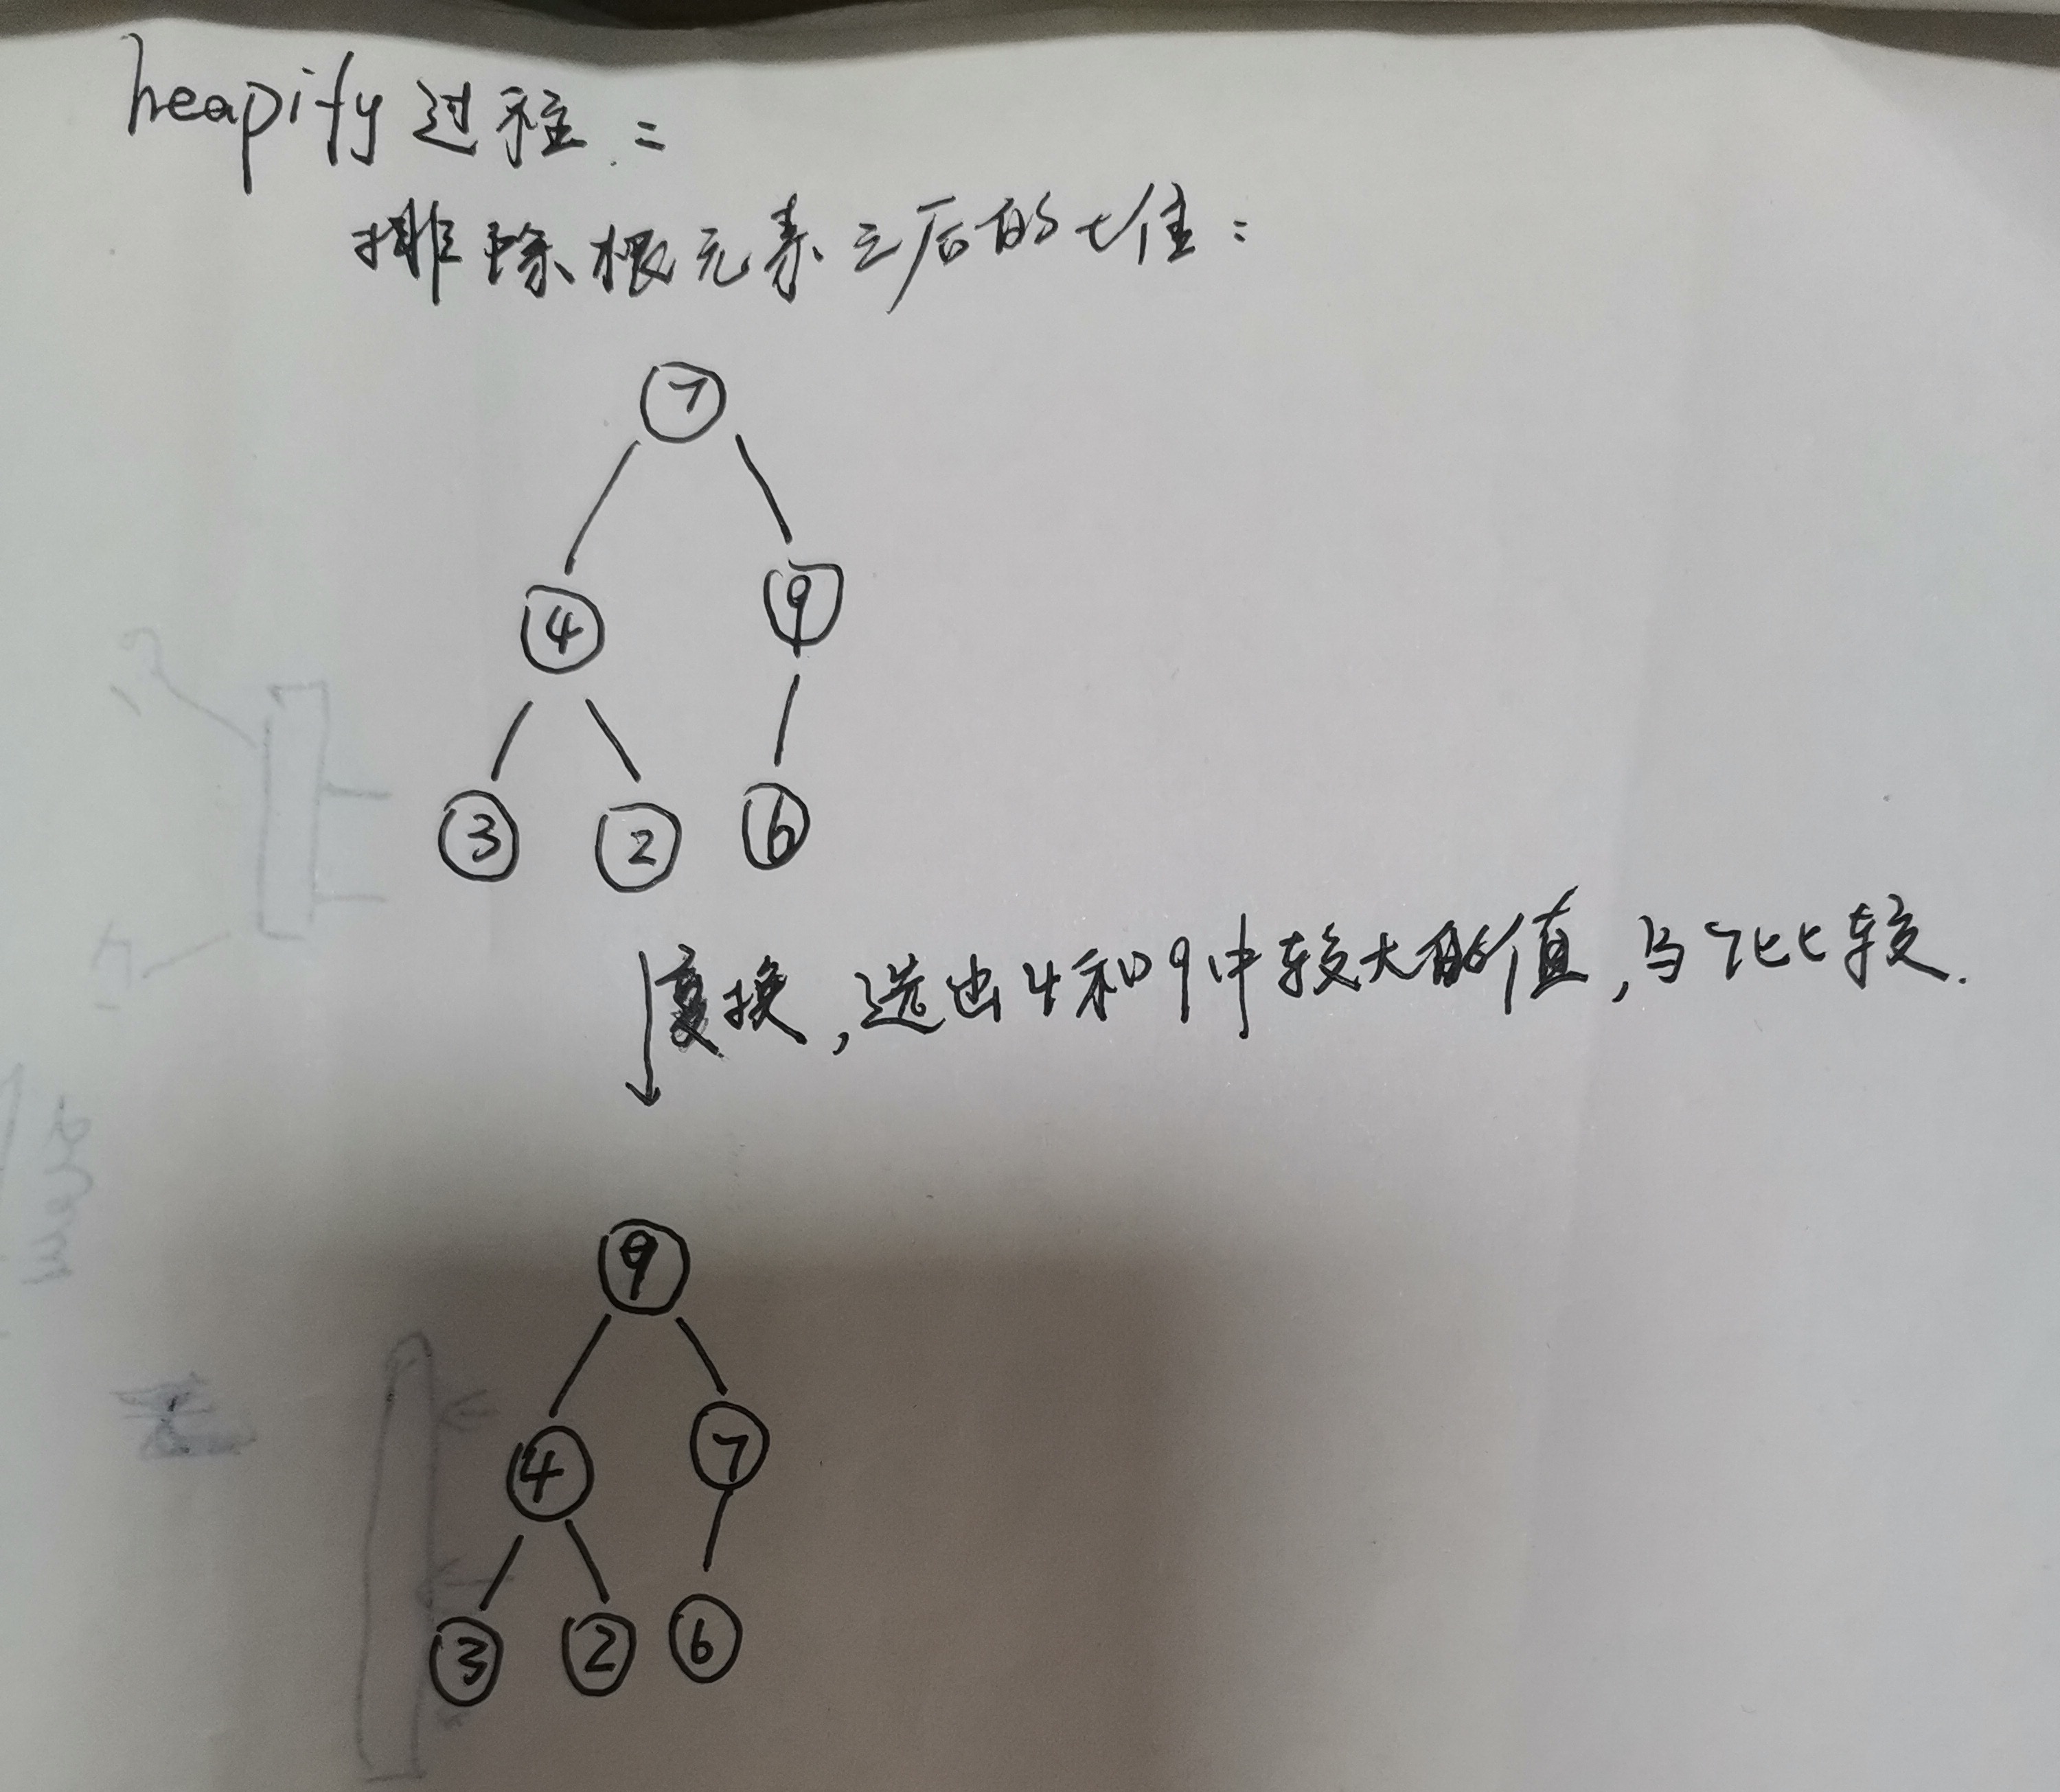 heapify 过程:
排除根元素之后的堆:
7
4 9
3 2 6
变换,选出4和9中较大的值,与7比较.
9
4 7
3 2 6